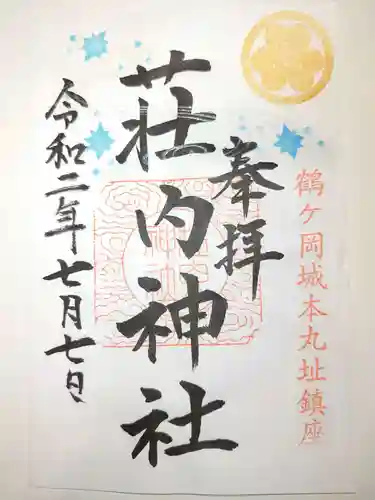 鶴ヶ岡城本丸址鎮座
奉拝
荘内神社
令和二年七月七日